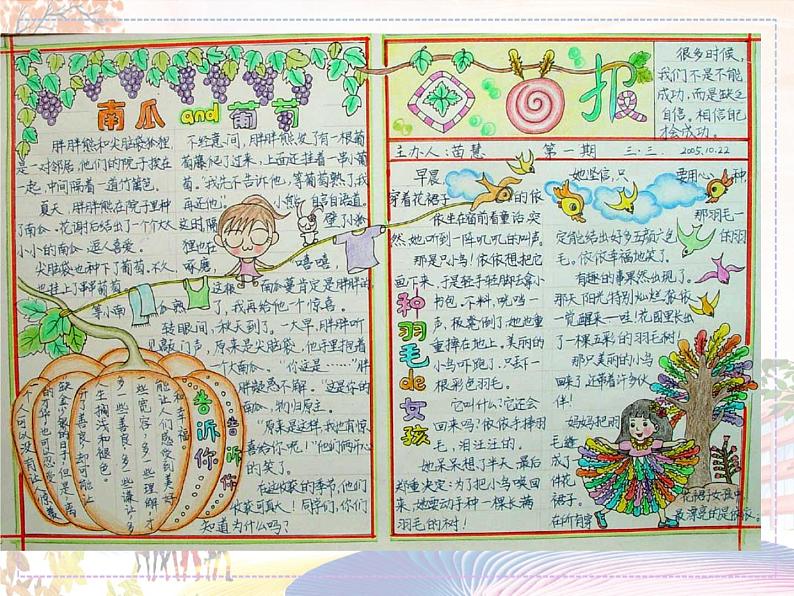 南瓜and葡萄
胖胖熊和尖脑袋狐狸
是一对邻居，他们的院子挨在
一起，中间隔着一道竹篱笆。
夏天，胖胖熊在院子里种
了南瓜，花谢后结出了一个大大
小小的南瓜，逗人喜爱。
尖脑袋也种下了葡萄。不久，
也挂上了串串葡萄
等小南
不经意间，胖胖熊发了有一根葡
萄藤爬了过来，上面还挂着一串小葡
萄。“我先不告诉他，等葡萄熟了，我
再还他。”
小熊
自言自语道。
这时，隔
壁的小狐
狸也在
琢磨
嘻嘻，
这根
南瓜蔓肯定是胖胖的，
瓜熟
了，我再给他一个惊喜。
转眼间，秋天到了。一大早，胖胖听
见敲门声，原来是尖脑袋，他手里抱着
一个大南瓜。“你这是……”胖
胖疑惑不解。“这是你的
南瓜，物归原主。”
“原来是这样，我也有惊
喜给你呢！”他们俩开心
的笑了。
在这收获的季节，他们
收获可真大！同学们，你们
知道为什么吗？
告诉你告诉你
人可以没有让人惊羡
的外表，也可以忍受
缺金少银的日子，但是，离
开了善良，却可能让
人生搁浅和褪色。
多一些善良，多一些谦让，多
一些宽容，多一些理解，才
能让人们感受到美好
和幸福。
报
很多时候，
我们不是不能
成功，而是缺乏
自信。相信自己
才会成功。
主办人：苗慧 第一期 三·三 2005.10.22
种羽毛de女孩
早晨，
穿着花裙子
的依
依坐在窗前看童话，突
然，她听到一阵叽叽的叫声。
那是只小鸟！依依想把它
画下来，于是轻手轻脚去拿小
书包，不料，咣当一
声，板凳倒了，她也重
重摔在地上。美丽的
小鸟吓跑了，只丢下一
根彩色羽毛。
它叫什么？它还会
回来吗？依依手捧羽
毛，泪汪汪的。
她呆呆想了半天，最后
郑重决定：为了把小鸟唤回
来，她要动手种一棵长满
羽毛的树！
她坚信，只
要用心
种，
那羽毛一
定能结出好多五颜六色
的羽
毛。依依幸福地笑了。
有趣的事果然出现了。
那天，阳光特别灿烂，等依依
一觉醒来——哇！花园里长出
了一棵五彩的羽毛树。
那只美丽的小鸟
回来了，还带着许多伙
伴！
妈妈把羽
毛缝
成了
一件花
裙子。
在所有穿
花裙子女孩中，
最漂亮的是依依。